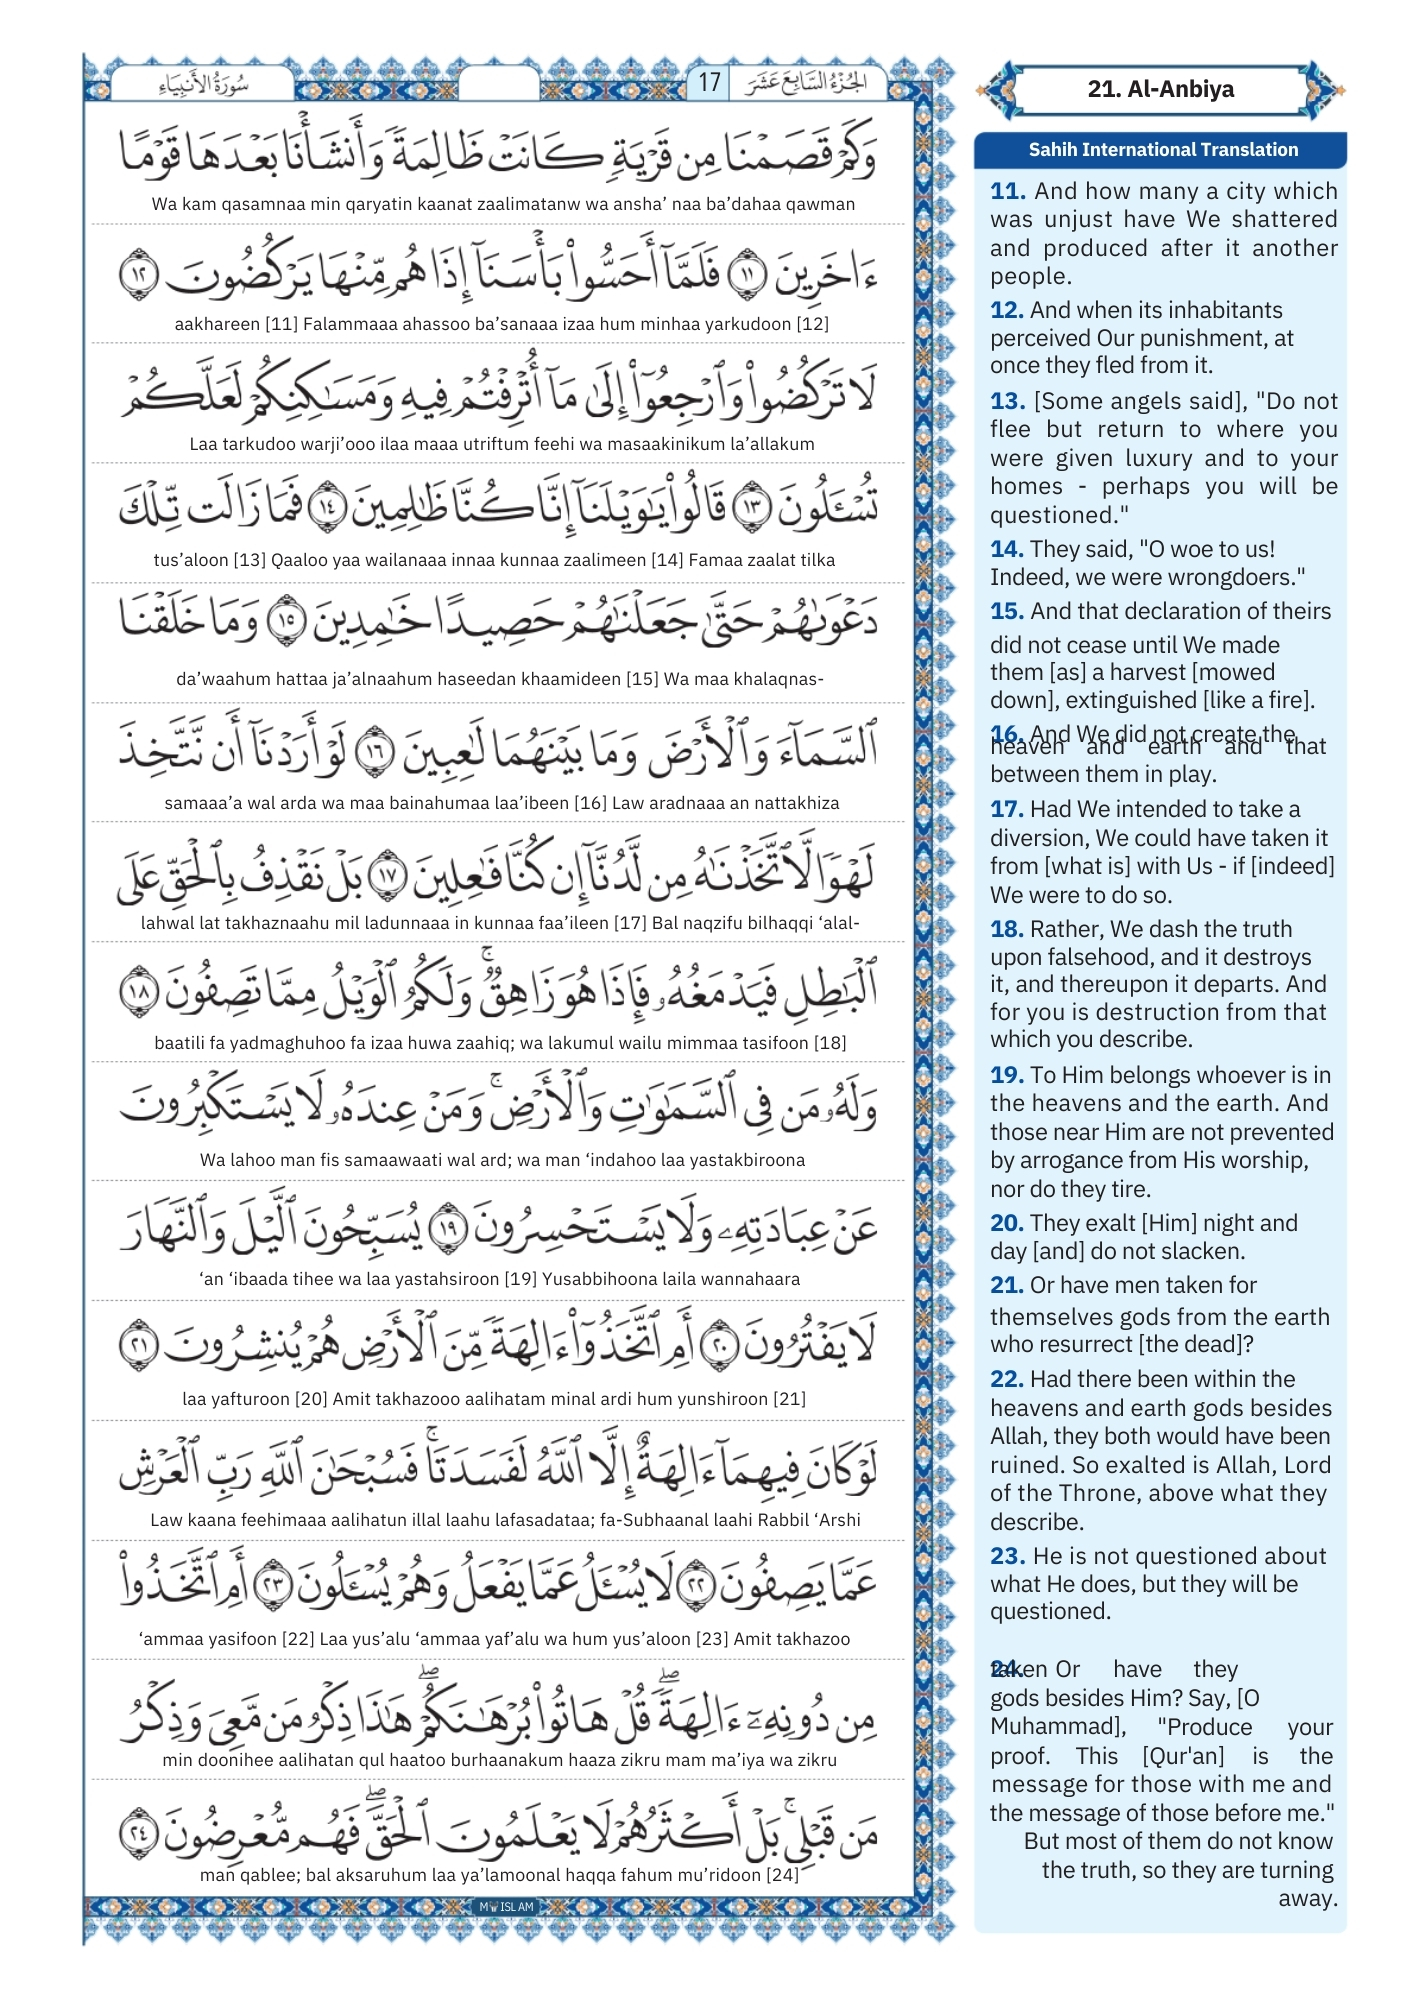 سُورَةُ الأَنْبِيَاءِ
17
الجُزْءُ السَّابِعَ عَشَرَ
وَكَمْ قَصَمْنَا مِن قَرْيَةٍ كَانَتْ ظَالِمَةً وَأَنشَأْنَا بَعْدَهَا قَوْمًا
Wa kam qasamnaa min qaryatin kaanat zaalimatanw wa ansha’ naa ba’dahaa qawman
ءَاخَرِينَ ١١ فَلَمَّآ أَحَسُّوا۟ بَأْسَنَآ إِذَا هُم مِّنْهَا يَرْكُضُونَ ١٢
aakhareen [11] Falammaaa ahassoo ba’sanaaa izaa hum minhaa yarkudoon [12]
لَا تَرْكُضُوا۟ وَٱرْجِعُوٓا۟ إِلَىٰ مَآ أُتْرِفْتُمْ فِيهِ وَمَسَـٰكِنِكُمْ لَعَلَّكُمْ
Laa tarkudoo warji’ooo ilaa maaa utriftum feehi wa masaakinikum la’allakum
تُسْـَٔلُونَ ١٣ قَالُوا۟ يَـٰوَيْلَنَآ إِنَّا كُنَّا ظَـٰلِمِينَ ١٤ فَمَا زَالَت تِّلْكَ
tus’aloon [13] Qaaloo yaa wailanaaa innaa kunnaa zaalimeen [14] Famaa zaalat tilka
دَعْوَىٰهُمْ حَتَّىٰ جَعَلْنَـٰهُمْ حَصِيدًا خَـٰمِدِينَ ١٥ وَمَا خَلَقْنَا
da’waahum hattaa ja’alnaahum haseedan khaamideen [15] Wa maa khalaqnas-
ٱلسَّمَآءَ وَٱلْأَرْضَ وَمَا بَيْنَهُمَا لَـٰعِبِينَ ١٦ لَوْ أَرَدْنَآ أَن نَّتَّخِذَ
samaaa’a wal arda wa maa bainahumaa laa’ibeen [16] Law aradnaaa an nattakhiza
لَهْوًا لَّٱتَّخَذْنَـٰهُ مِن لَّدُنَّآ إِن كُنَّا فَـٰعِلِينَ ١٧ بَلْ نَقْذِفُ بِٱلْحَقِّ عَلَى
lahwal lat takhaznaahu mil ladunnaaa in kunnaa faa’ileen [17] Bal naqzifu bilhaqqi ‘alal-
ٱلْبَـٰطِلِ فَيَدْمَغُهُۥ فَإِذَا هُوَ زَاهِقٌ ۚ وَلَكُمُ ٱلْوَيْلُ مِمَّا تَصِفُونَ ١٨
baatili fa yadmaghuhoo fa izaa huwa zaahiq; wa lakumul wailu mimmaa tasifoon [18]
وَلَهُۥ مَن فِى ٱلسَّمَـٰوَٰتِ وَٱلْأَرْضِ ۚ وَمَنْ عِندَهُۥ لَا يَسْتَكْبِرُونَ
Wa lahoo man fis samaawaati wal ard; wa man ‘indahoo laa yastakbiroona
عَنْ عِبَادَتِهِۦ وَلَا يَسْتَحْسِرُونَ ١٩ يُسَبِّحُونَ ٱلَّيْلَ وَٱلنَّهَارَ
‘an ‘ibaada tihee wa laa yastahsiroon [19] Yusabbihoona laila wannahaara
لَا يَفْتُرُونَ ٢٠ أَمِ ٱتَّخَذُوٓا۟ ءَالِهَةً مِّنَ ٱلْأَرْضِ هُمْ يُنشِرُونَ ٢١
laa yafturoon [20] Amit takhazooo aalihatam minal ardi hum yunshiroon [21]
لَوْ كَانَ فِيهِمَآ ءَالِهَةٌ إِلَّا ٱللَّهُ لَفَسَدَتَا ۚ فَسُبْحَـٰنَ ٱللَّهِ رَبِّ ٱلْعَرْشِ
Law kaana feehimaaa aalihatun illal laahu lafasadataa; fa-Subhaanal laahi Rabbil ‘Arshi
عَمَّا يَصِفُونَ ٢٢ لَا يُسْـَٔلُ عَمَّا يَفْعَلُ وَهُمْ يُسْـَٔلُونَ ٢٣ أَمِ ٱتَّخَذُوا۟
‘ammaa yasifoon [22] Laa yus’alu ‘ammaa yaf’alu wa hum yus’aloon [23] Amit takhazoo
مِن دُونِهِۦٓ ءَالِهَةً ۖ قُلْ هَاتُوا۟ بُرْهَـٰنَكُمْ ۖ هَـٰذَا ذِكْرُ مَن مَّعِىَ وَذِكْرُ
min doonihee aalihatan qul haatoo burhaanakum haaza zikru mam ma’iya wa zikru
مَن قَبْلِى ۚ بَلْ أَكْثَرُهُمْ لَا يَعْلَمُونَ ٱلْحَقَّ ۖ فَهُم مُّعْرِضُونَ ٢٤
man qablee; bal aksaruhum laa ya’lamoonal haqqa fahum mu’ridoon [24]
21. Al-Anbiya
Sahih International Translation
11. And how many a city which
was unjust have We shattered
and produced after it another
people.
12. And when its inhabitants
perceived Our punishment, at
once they fled from it.
13. [Some angels said], "Do not
flee but return to where you
were given luxury and to your
homes - perhaps you will be
questioned."
14. They said, "O woe to us!
Indeed, we were wrongdoers."
15. And that declaration of theirs
did not cease until We made
them [as] a harvest [mowed
down], extinguished [like a fire].
16. And We did not create the
heaven and earth and that
between them in play.
17. Had We intended to take a
diversion, We could have taken it
from [what is] with Us - if [indeed]
We were to do so.
18. Rather, We dash the truth
upon falsehood, and it destroys
it, and thereupon it departs. And
for you is destruction from that
which you describe.
19. To Him belongs whoever is in
the heavens and the earth. And
those near Him are not prevented
by arrogance from His worship,
nor do they tire.
20. They exalt [Him] night and
day [and] do not slacken.
21. Or have men taken for
themselves gods from the earth
who resurrect [the dead]?
22. Had there been within the
heavens and earth gods besides
Allah, they both would have been
ruined. So exalted is Allah, Lord
of the Throne, above what they
describe.
23. He is not questioned about
what He does, but they will be
questioned.
24. taken Or have they
gods besides Him? Say, [O
Muhammad], "Produce your
proof. This [Qur'an] is the
message for those with me and
the message of those before me."
But most of them do not know
the truth, so they are turning
away.